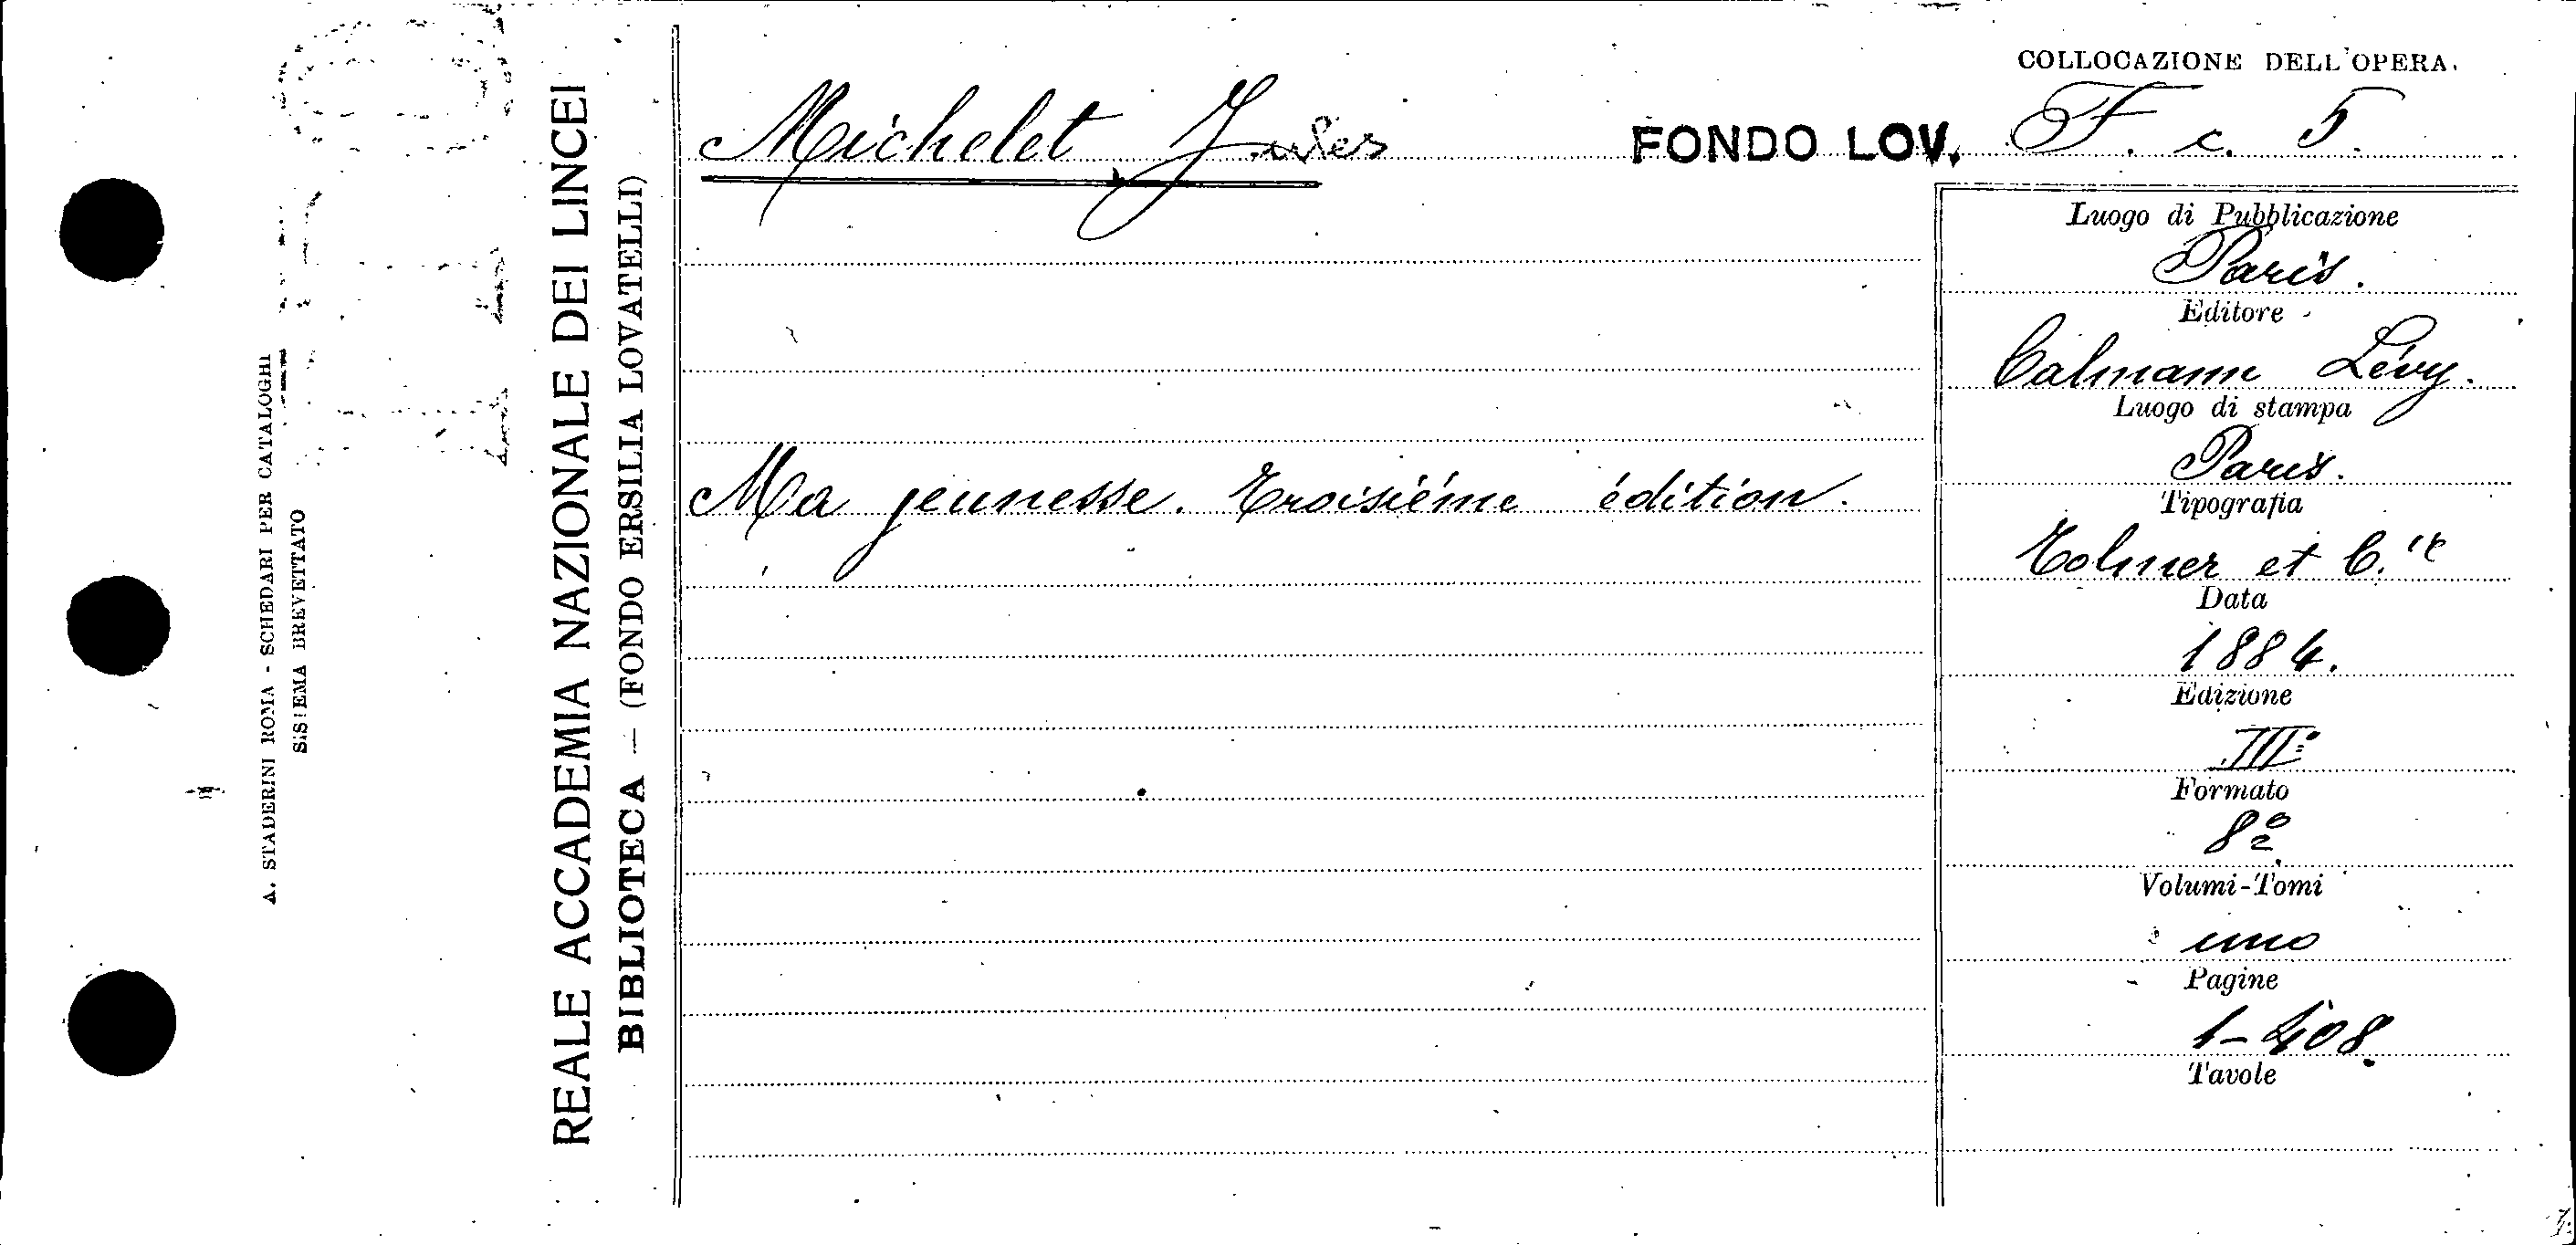 COLLOCAZIONE DELL'OPERA.
Michelet Jules
FONDO LOV. F. c. 5.
Luogo di Pubblicazione
Paris.
Editore
Calmann Lévy.
Luogo di stampa
Paris.
Ma jeunesse. Troisiéme édition.
Tipografia
Tolmer et C.ie
Data
1884.
Edizione
III.
Formato
8º
Volumi-Tomi
uno
Pagine
1-408.
Tavole
REALE ACCADEMIA NAZIONALE DEI LINCEI
BIBLIOTECA — (FONDO ERSILIA LOVATELLI)
A. STADERINI ROMA - SCHEDARI PER CATALOGHI
SISTEMA BREVETTATO